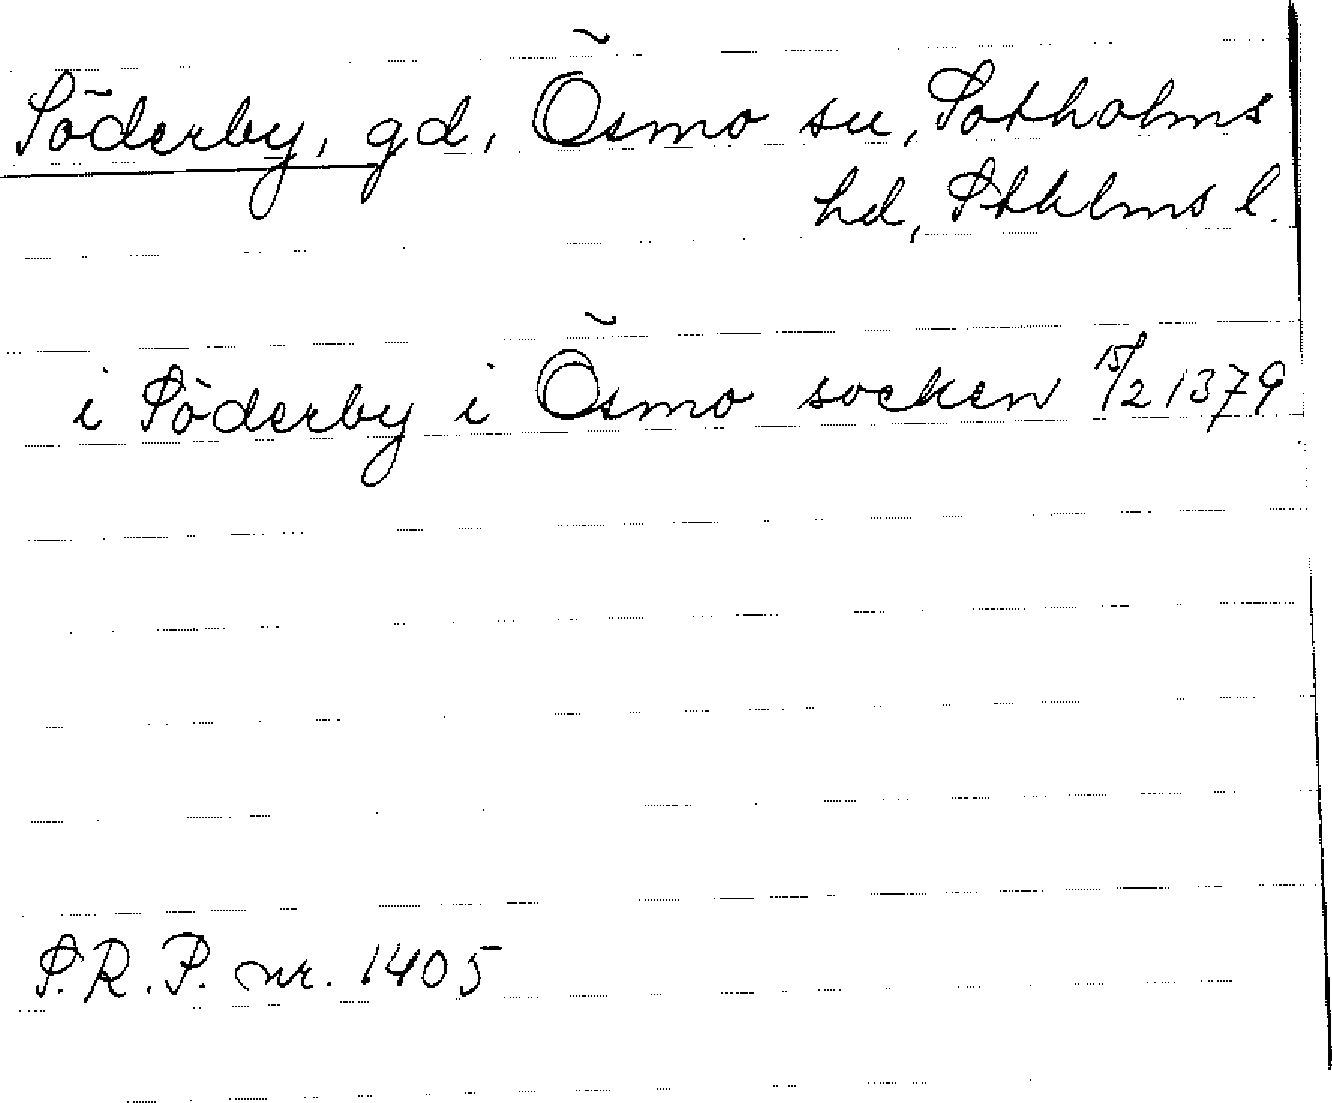 Söderby, gd, Ösmo sn, Sotholms
hd, Sthlms l.
i Söderby i Ösmo socken 15/2 1379
S.R.P. nr. 1405